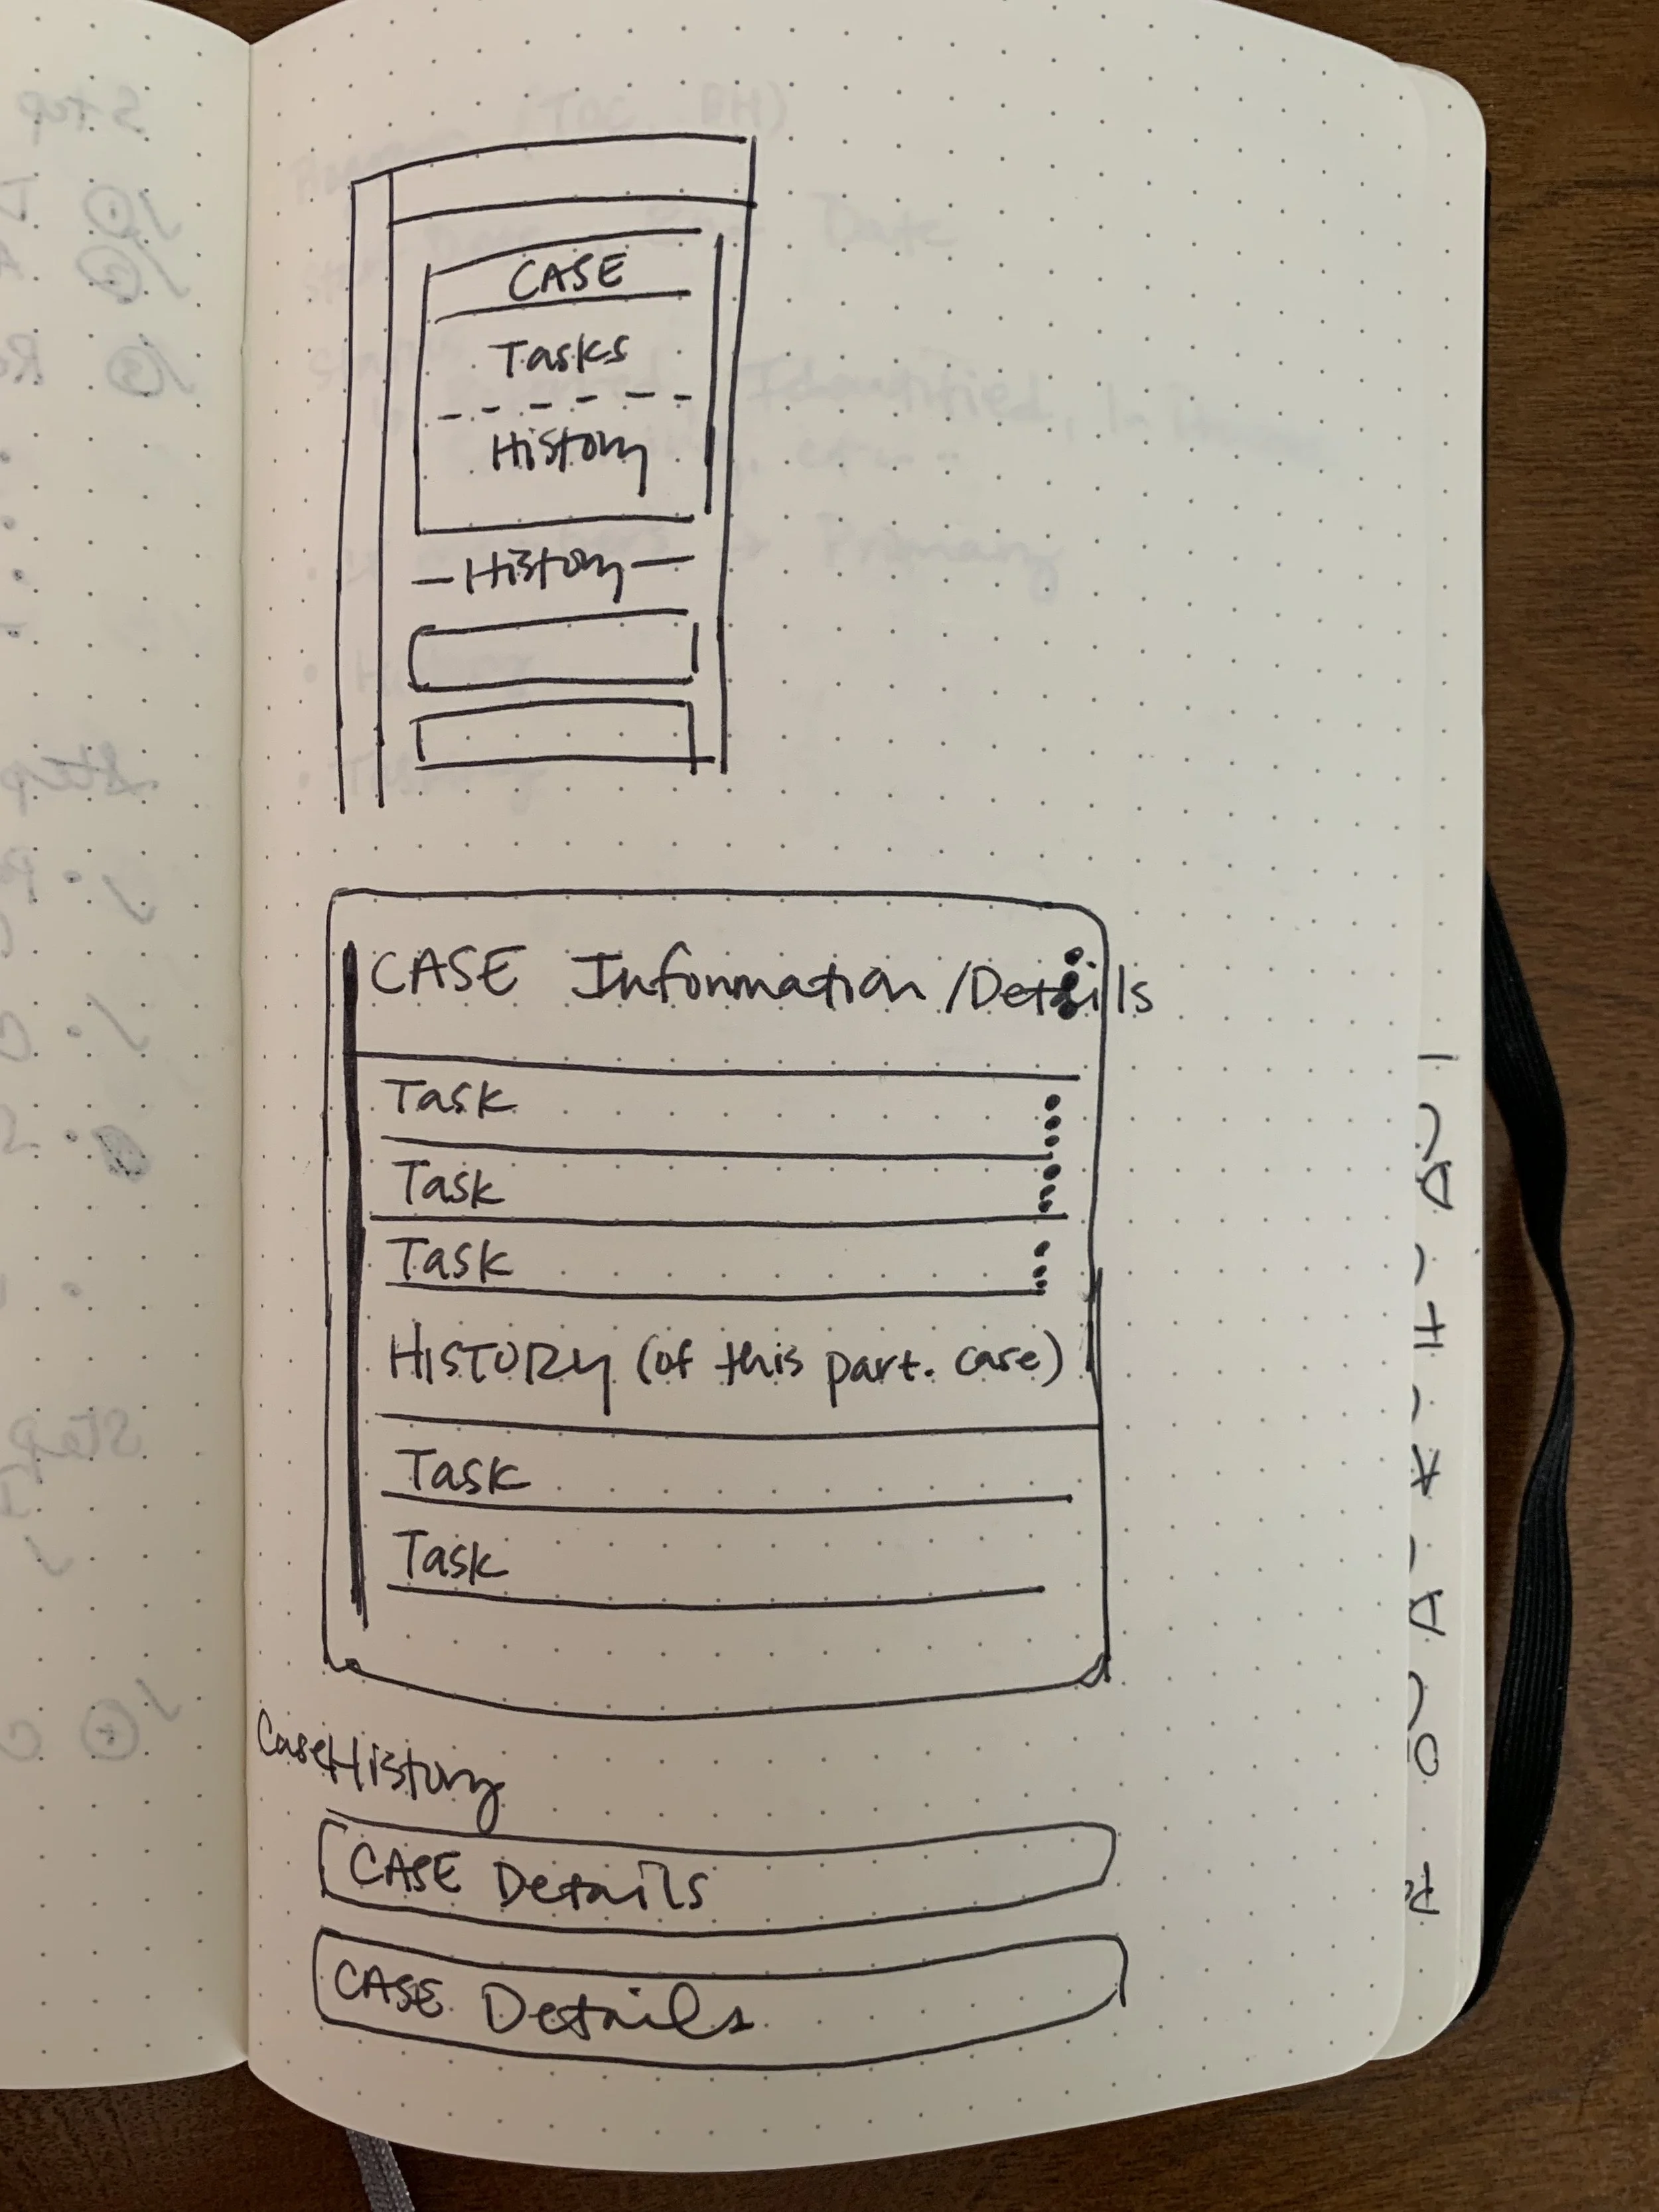 CASE
Tasks
History
History
CASE Information/Details
Task
Task
Task
HISTORY (of this part. case)
Task
Task
Case History
CASE Details
CASE Details